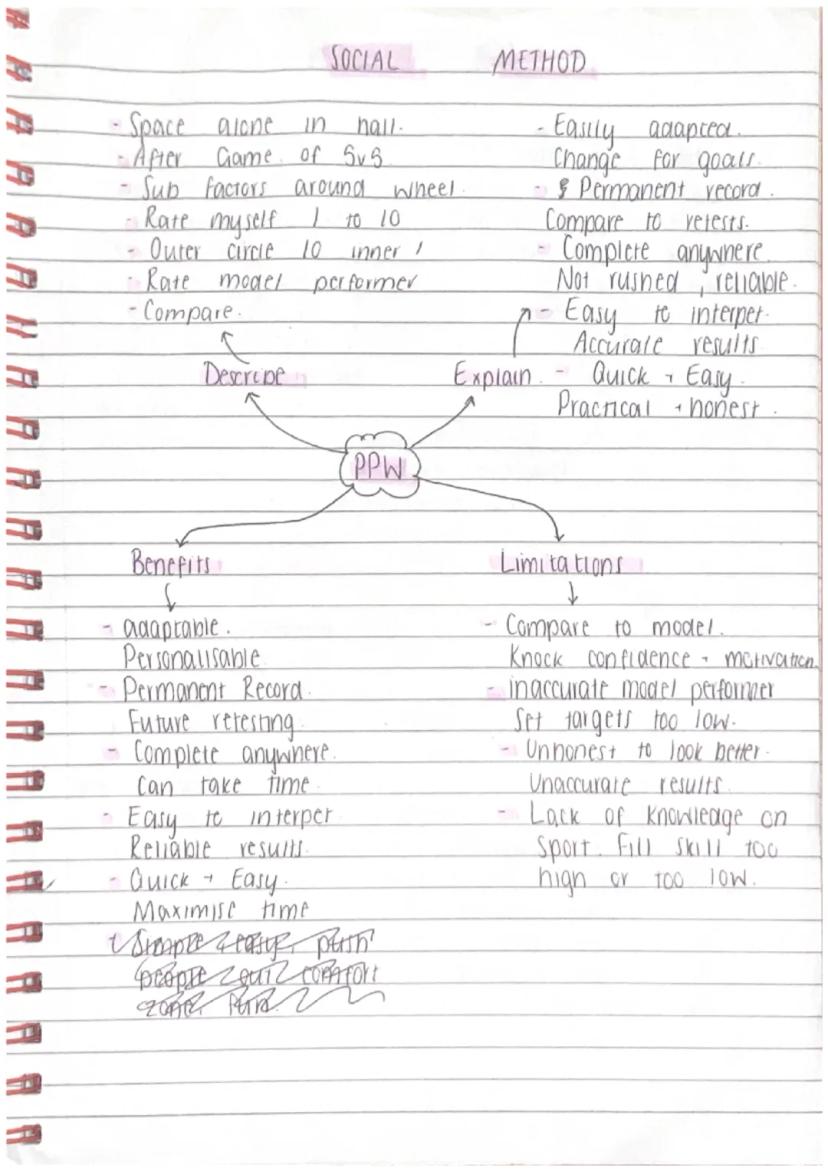 SOCIAL METHOD
- Space alone in hall.
- After Game of 5v5
- Sub factors around wheel.
- Rate myself 1 to 10
- Outer circle 10 inner 1
- Rate model performer
- Compare.
Describe
- Easily adapted.
Change for goals.
- Permanent record.
Compare to retests.
- Complete anywhere.
Not rushed, reliable.
- Easy to interpet.
Accurate results
- Quick + Easy.
Practical + honest.
Explain
PPW
Benefits
- adaptable.
Personalisable.
- Permanent Record.
Future retesting.
- Complete anywhere.
Can take time
- Easy to interpet
Reliable results.
- Quick + Easy.
Maximise time
Simple + easy, push
people out comfort
zone.
Limitations
- Compare to model.
Knock confidence + motivation.
- inaccurate model performer
Set targets too low.
- Unhonest to look better.
Unaccurate results.
- Lack of knowledge on
Sport. Fill skill too
high or too low.